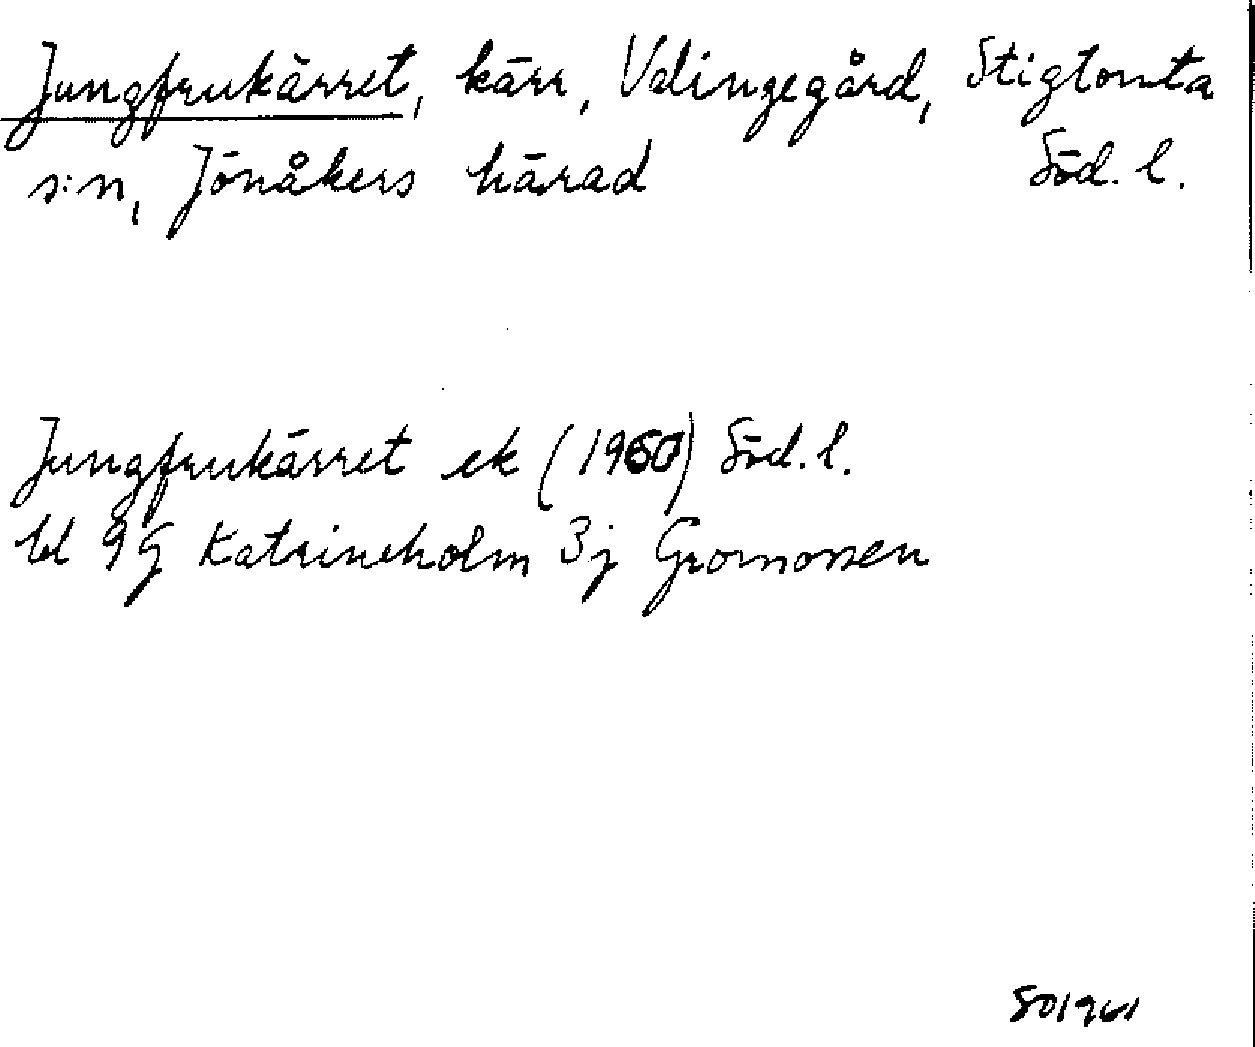 Jungfrukärret, kärr, Vdlingegård, Stigtomta
s:n, Jönåkers härad Söd. l.
Jungfrukärret ek (1960) Söd. l.
bl 9G Katrineholm 3j Gromossen
SO1961